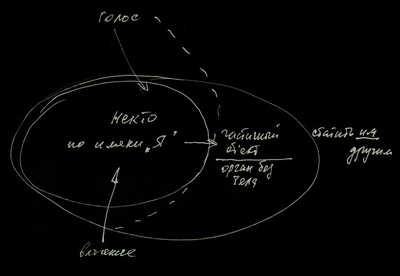 голос
Некто
по имени „Я“
частичный
объект
орган без
тела
им
другим
влечение